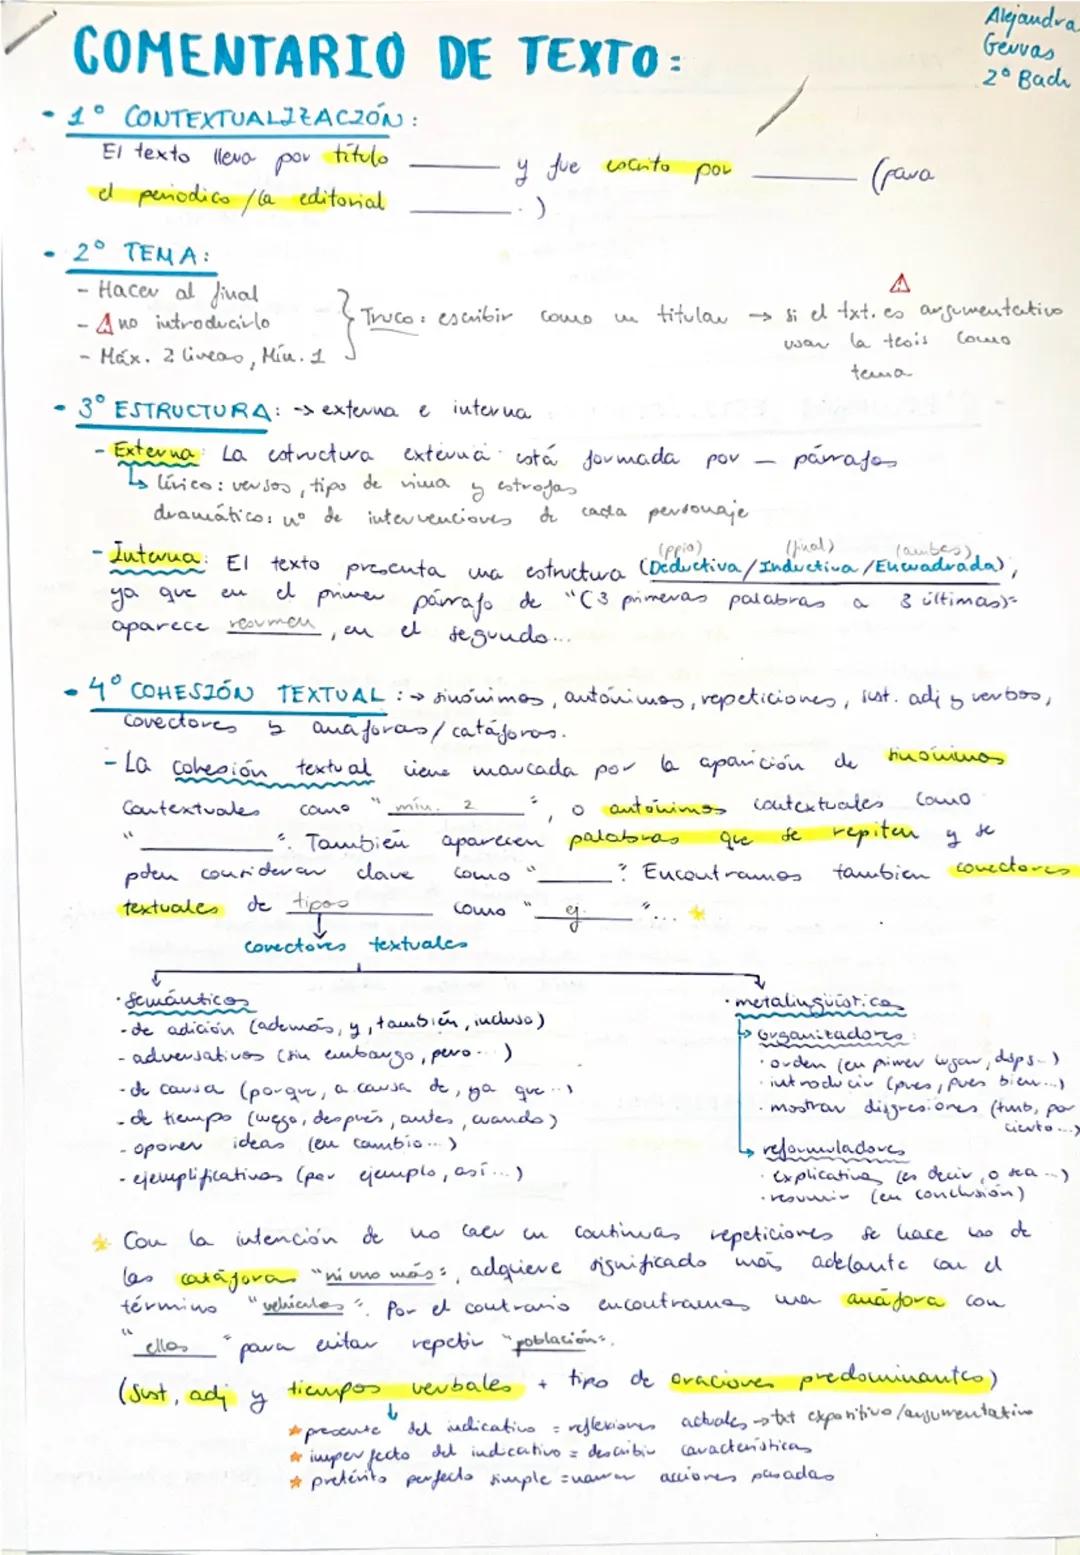 Alejandra
Gervas
2º Bach
COMENTARIO DE TEXTO:
- 1º CONTEXTUALIZACIÓN:
El texto lleva por título ______ y fue escrito por ______ (para
el periodico/la editorial ______.)
- 2º TEMA:
- Hacer al final
- ⚠ no introducirlo
- Máx. 2 líneas, Mín. 1
Truco: escribir como un titular → si el txt. es argumentativo
usar la tesis como
tema
- 3º ESTRUCTURA: → externa e interna
- Externa: La estructura externa está formada por — párrafos
↳ lírico: versos, tipo de rima y estrofas
dramático: nº de intervenciones de cada personaje
(ppio) (final) (ambes)
- Interna: El texto presenta una estructura (Deductiva/Inductiva/Encuadrada),
ya que en el primer párrafo de "(3 primeras palabras a 3 últimas)"
aparece resumen, en el segundo...
- 4º COHESIÓN TEXTUAL: → sinónimos, antónimos, repeticiones, sust. adj y verbos,
conectores y anáforas/catáforas.
- La cohesión textual viene marcada por la aparición de sinónimos
contextuales como "mín. 2", o antónimos contextuales como
"______". También aparecen palabras que se repiten y se
pden considerar clave como "______". Encontramos tambien conectores
textuales de tipos como "ej."... *
conectores textuales
· Semánticos
- de adición (además, y, también, incluso)
- adversativos (sin embargo, pero...)
- de causa (porque, a causa de, ya que...)
- de tiempo (luego, después, antes, cuando)
- oponer ideas (en cambio...)
- ejemplificativos (por ejemplo, así...)
· metalingüísticos
↳ organizadores:
· orden (en primer lugar, dsps..)
· introducir (pues, pues bien...)
· mostrar digresiones (tmb, por
cierto...)
↳ reformuladores
· explicativos (es decir, o sea...)
· resumir (en conclusión)
* Con la intención de no caer en continuas repeticiones se hace uso de
las catáforas "ni uno más", adquiere significado más adelante con el
término "vehículos". Por el contrario encontramos una anáfora con
"ellos" para evitar repetir "población".
(Sust, adj y tiempos verbales + tipo de oraciones predominantes)
* presente del indicativo = reflexiones actuales → txt expositivo/argumentativo
* imperfecto del indicativo = describir características
* pretérito perfecto simple = narrar acciones pasadas